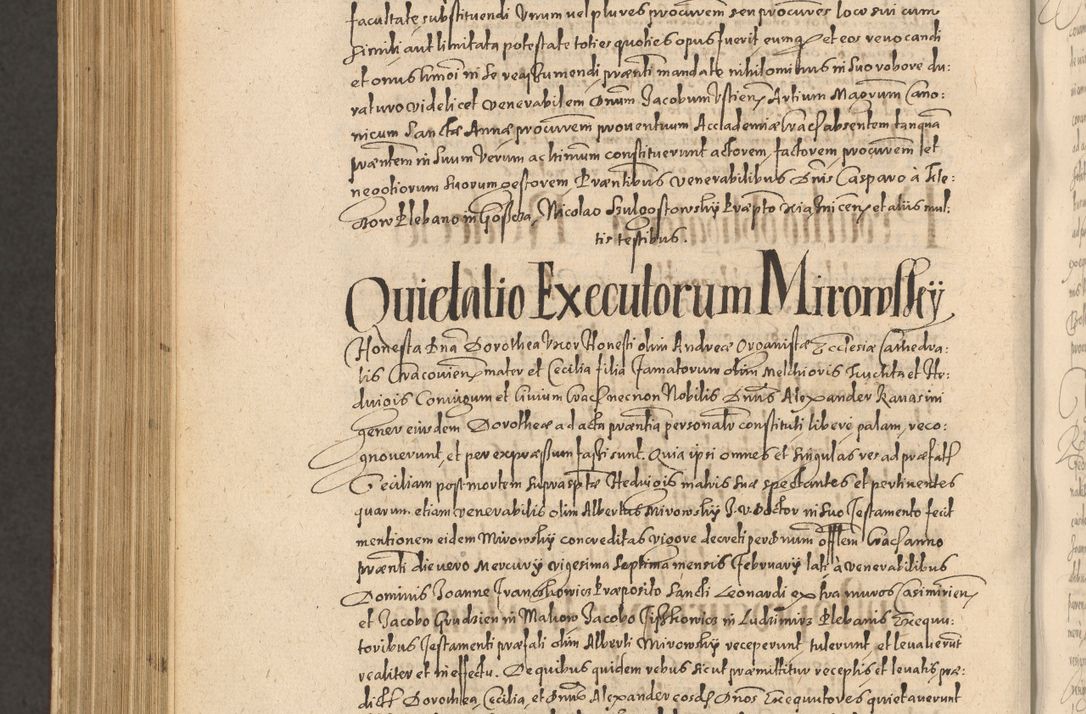 facultate substituendi unum vel plures procurem seu procures loco sui cum
simili aut limitata potestate toties quoties opus fuerit eumq et eos revocandi
et onus huiusmoi in se reassumendi præsenti mandato nihilominus in suo robore du:
raturo videlicet venerabilem Dnum Jacobum Ustien Artium Magrum Cano:
nicum Sanctæ Annæ procurem proventuum Accademiæ Crac absentem tanquã
præsentem in suum verum ac ltimum constituerunt actorem, factorem procurem
negotiorum suorum gestorem Præsentibus venerabilibus Dnis Casparo à
Plebano in Nicolao Szulgostowsky Præpto Xiąsnicen et aliis mul:
tis testibus.
Quietatio Executorum Mirowskÿ
Honesta Dna Dorothea Uxor Honesti olim Andreæ Organistæ Ecclesiæ Cathedra:
lis Cracovien mater et Cecilia filia famatorum olim Melchioris et He:
dvigis Coniugum et Civium Crac necnon Nobilis Dnus Alexander Ravasini
gener eiusdem Dorotheæ ad acta præsentia personalr constituti libere palam, reco:
gnoverunt, et per expræssum fassi sunt. Quia ipsi omnes et singulas res ad præfat
Ceciliam post mortem suprasptæ Hedvigis matris suæ spectantes et pertinentes
quarum etiam venerabilis olim Albertus Mirowsky J. V. Doctor in suo Testamento fecit
mentionem eidem Mirowsky concreditas vigore decreti per Dnum offlem Crac anno
præsenti die vero Mercurÿ vigesima septima mensis Februarÿ lati à venerabilibus
Dominis Joanne Præposito Sancti Leonardi extra muros Casimirien
et Jacobo Grudzien in Jacobo in Ludzimirz Plebanis Exequu:
toribus Testamenti præfati olim Alberti Mirowsky receperunt tulerunt et levaverunt
realiter et in effectu. De quibus quidem rebus sicut præmittitur receptis et levatis præ:
dict Dorothea, Cecilia, et Dnus Alexander eosd Dnos Exequutores quietaverunt